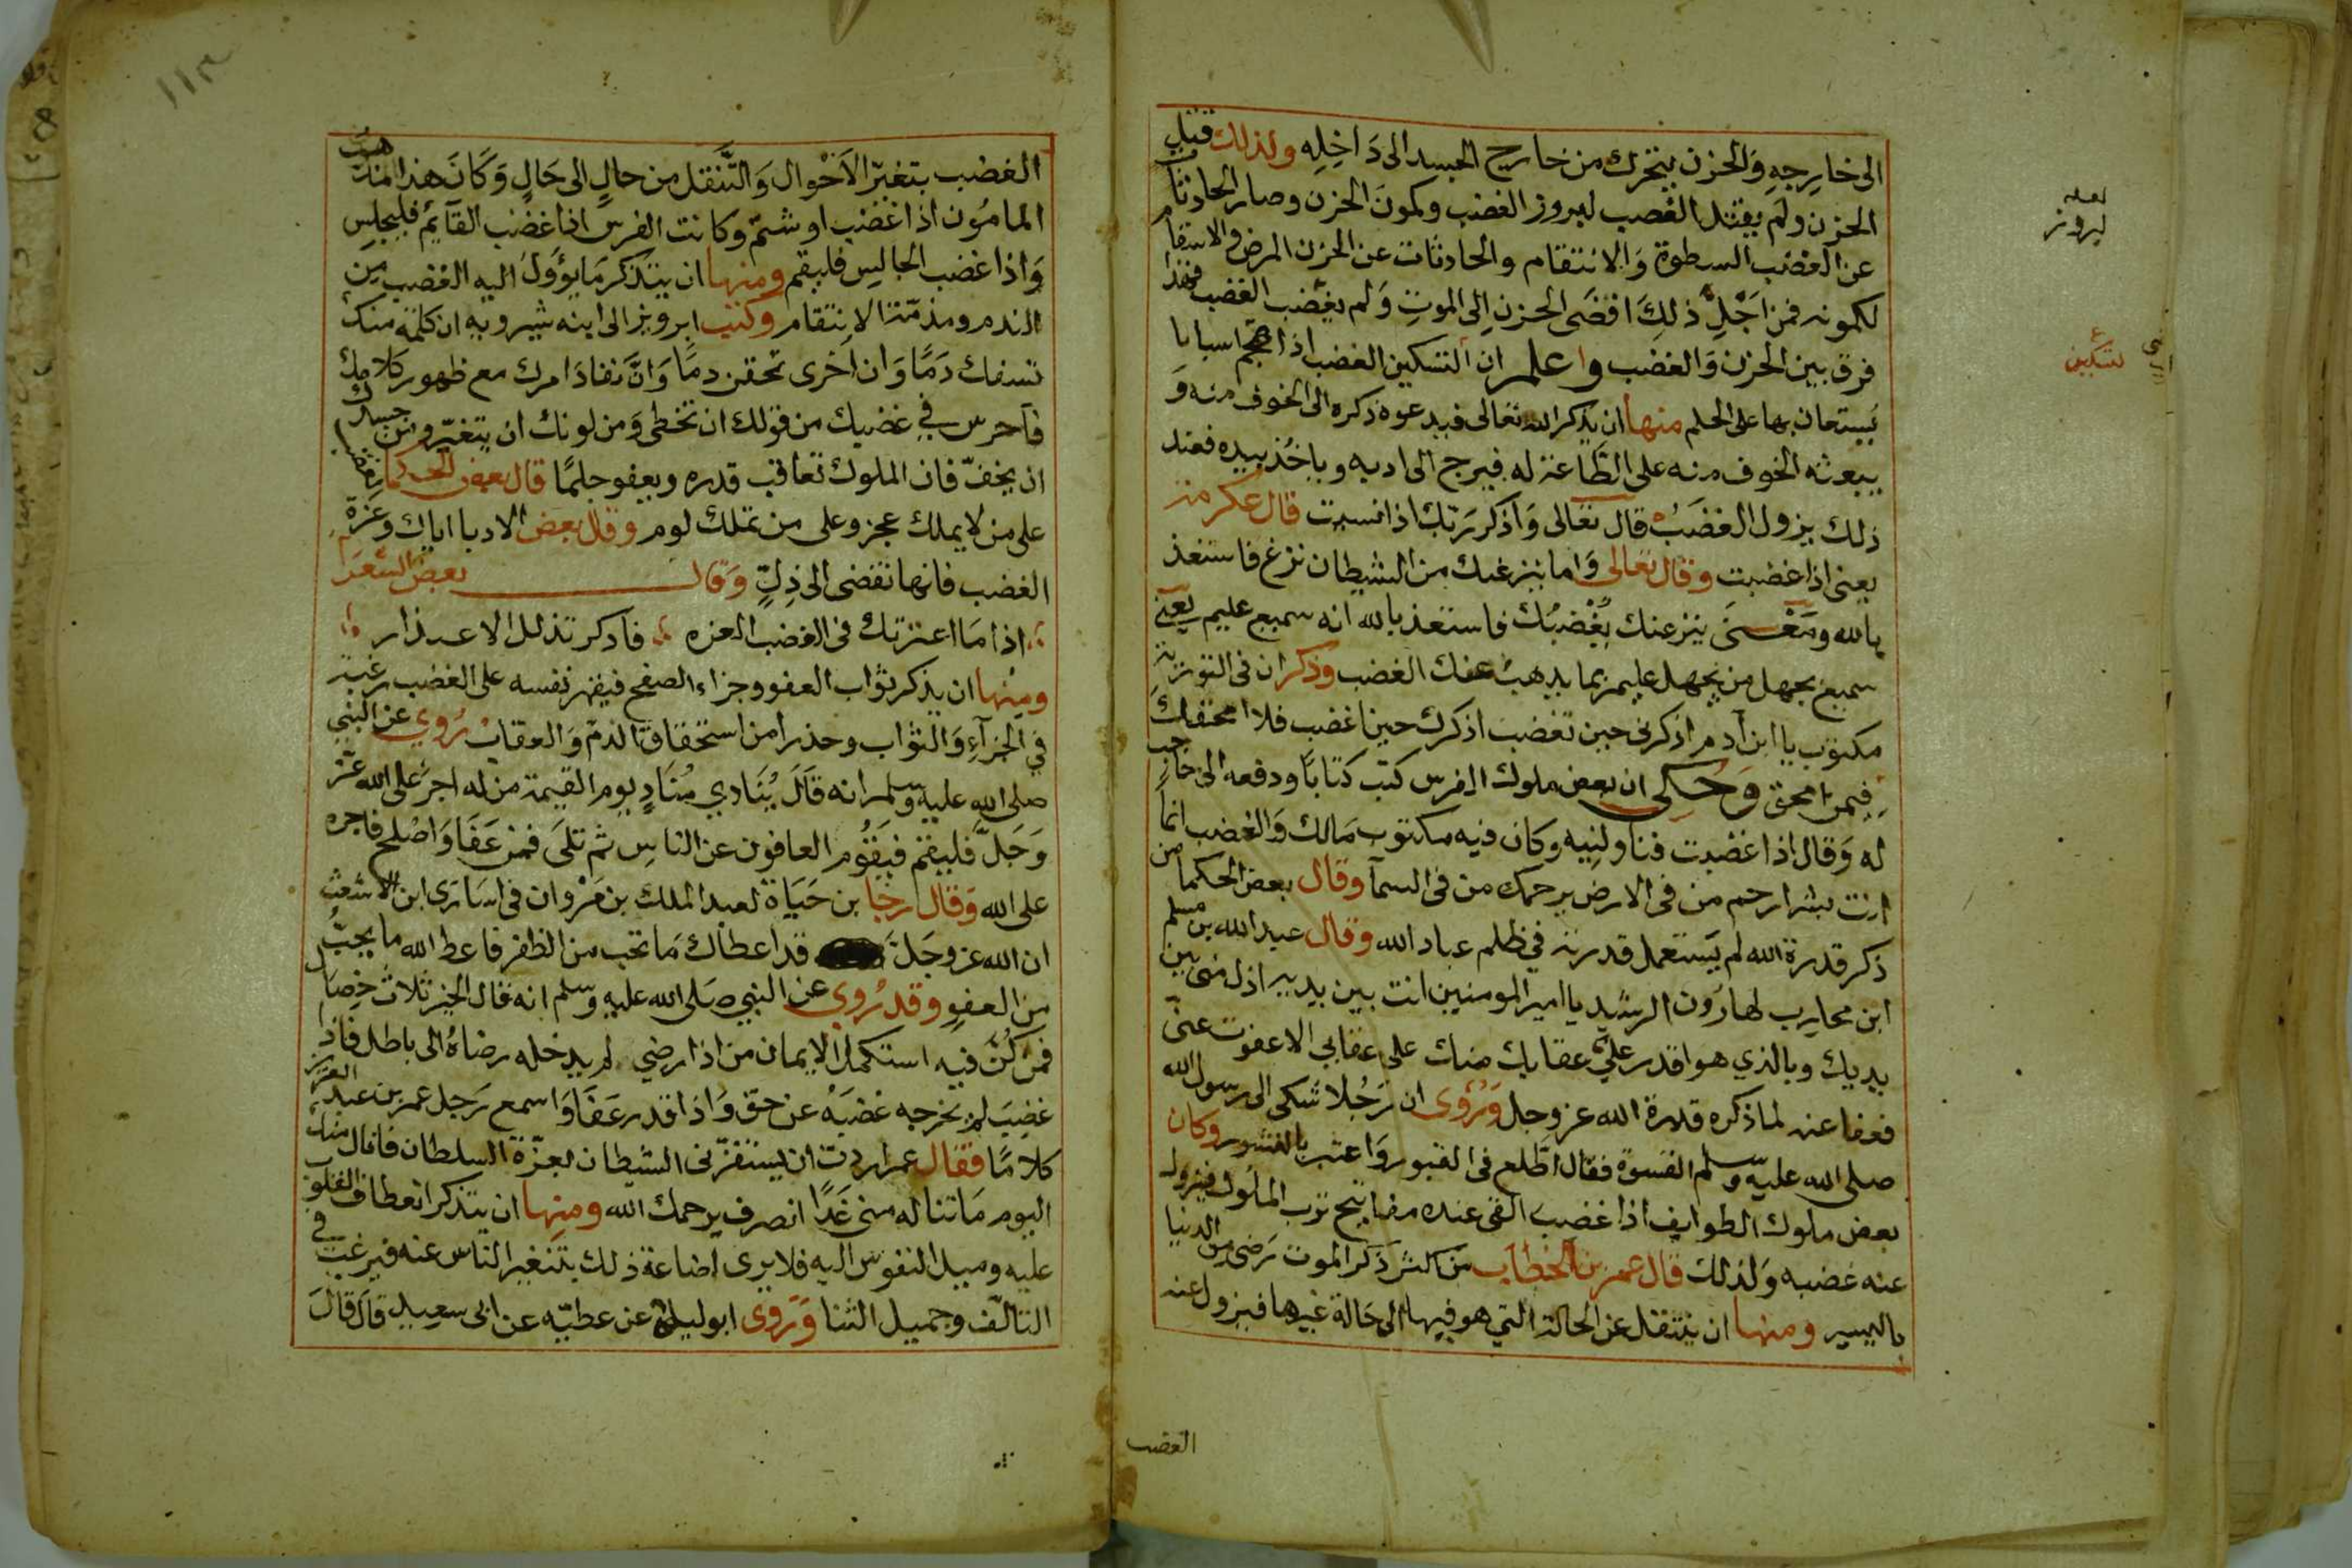 الى خارجه والحزن يتحرك من خارج الجسد الى داخله ولذلك قتل
الحزن ولم يقتل الغضب لبروز الغضب وكمون الحزن وصار الحادث
عن الغضب السطوة والانتقام والحادثات عن الحزن المرض والانتقام
لكمونه فمن اجل ذلك افضى الحزن الى الموت ولم يغضب الغضب فهذا
فرق بين الحزن والغضب واعلم ان التسكين الغضب اذا هجم اسبابا
يستعان بها على الحلم منها ان يذكر الله تعالى فيدعوه ذكره الى الخوف منه و
يبعثه الخوف منه على الطاعة له فيرجع الى ادبه وياخذ بيده فعند
ذلك يزول الغضب قال تعالى واذكر ربك اذا نسيت قال عكرمة
يعنى اذا غضبت وقال تعالى واما ينزغنك من الشيطان نزغ فاستعذ
بالله ومعنى ينزغنك يغضبك فاستعذ بالله انه سميع عليم يعنى
سميع بجهل من يجهل عليم بما يذهب عنك الغضب وذكر ان فى التورية
مكتوب يا ابن آدم اذكرنى حين تغضب اذكرك حين اغضب فلا امحقك
فيمن امحق وحكى ان بعض ملوك الفرس كتب كتابا ودفعه الى حاجب
له وقال اذا غضبت فناولنيه وكان فيه مكتوب مالك والغضب انما
انت بشر ارحم من فى الارض يرحمك من فى السمآ وقال بعض الحكما من
ذكر قدرة الله لم يستعمل قدرته في ظلم عباد الله وقال عبد الله بن مسلم
ابن محارب لهارون الرشيد يا امير المومنين انت بين يديه اذل منى بين
يديك وبالذي هو اقدر على عقابك منك على عقابي الا عفوت عنى
فعفا عنه لما ذكره قدرة الله عز وجل وروى ان رجلا شكى الى رسول الله
صلى الله عليه وسلم القسوة فقال اطلع فى القبور واعتبر بالنشور وكان
بعض ملوك الطوايف اذا غضب القى عنده مفاتيح ترب الملوك فيزول
عنه غضبه ولذلك قال عمر بن الخطاب من اكثر ذكر الموت رضى من الدنيا
باليسير ومنها ان ينتقل عن الحالة التي هو فيها الى حالة غيرها فيزول عنه
الغضب
لعله
لبروز
لتسكين
١١٣
الغضب بتغير الاحوال والتنقل من حال الى حال وكان هذا مذهب
المامون اذا اغضب او شتم وكانت الفرس اذا غضب القآيم فليجلس
واذا غضب الجالس فليقم ومنها ان يتذكر ما يؤول اليه الغضب من
الندم ومذمة الانتقام وكتب ابرويز الى ابنه شيرويه ان كلمة منك
تسفك دما وان اخرى تحقن دما وان نفاد امرك مع ظهور كلامك
فآحرس في غضبك من قولك ان تخطى ومن لونك ان يتغير ومن جسدك
ان يخف فان الملوك تعاقب قدره وبعفو حلما قال بعض الحكما الغضب
على من لا يملك عجز وعلى من تملك لوم وقال بعض الادبا اياك وعزة
الغضب فانها تفضى الى ذل وقال بعض الشعرا
اذا ما اعترتك فى الغضب العزه فآدكر تذلل الاعذار
ومنها ان يذكر ثواب العفو وجزاء الصفح فيقهر نفسه على الغضب رغبة
في الجزآء والثواب وحذرا من استحقاق الذم والعقاب روي عن النبي
صلى الله عليه وسلم انه قال ينادي مناد يوم القيمة من له اجر على الله عز
وجل فليقم فيقوم العافون عن الناس ثم تلى فمن عفا واصلح فاجره
على الله وقال رجا بن حياة لعبد الملك بن مروان فى اسارى ابن الاشعث
ان الله عز وجل قد اعطاك ما تحب من الظفر فاعط الله ما يحب
من العفو وقد روي عن النبي صلى الله عليه وسلم انه قال الخير ثلاث خصال
فمن كن فيه استكمل الايمان من اذا رضي لم يدخله رضاه الى باطل فاذ
غضب لم يخرجه غضبه عن حق واذا قدر عفا واسمع رجل عمر بن عبد العزيز
كلاما فقال عمر اردت ان يستفزنى الشيطان لعزة السلطان فانال منك
اليوم ما تناله منى غدا انصرف يرحمك الله ومنها ان يتذكر انعطاف القلوب
عليه وميل النفوس اليه فلا يرى اضاعة ذلك بتنغير الناس عنه فيرغب في
التالف وجميل الثنا وروى ابو ليلى عن عطيه عن ابى سعيد قال قال